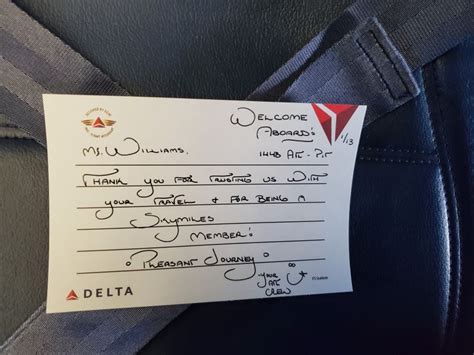 WELCOME
ABOARD!
1/13
MS. WILLIAMS.
1448 ATL - PIT
THANK YOU FOR TRUSTING US WITH
YOUR TRAVEL & FOR BEING A
SKYMILES
MEMBER!
PLEASANT JOURNEY
YOUR ATL
CREW
DELTA